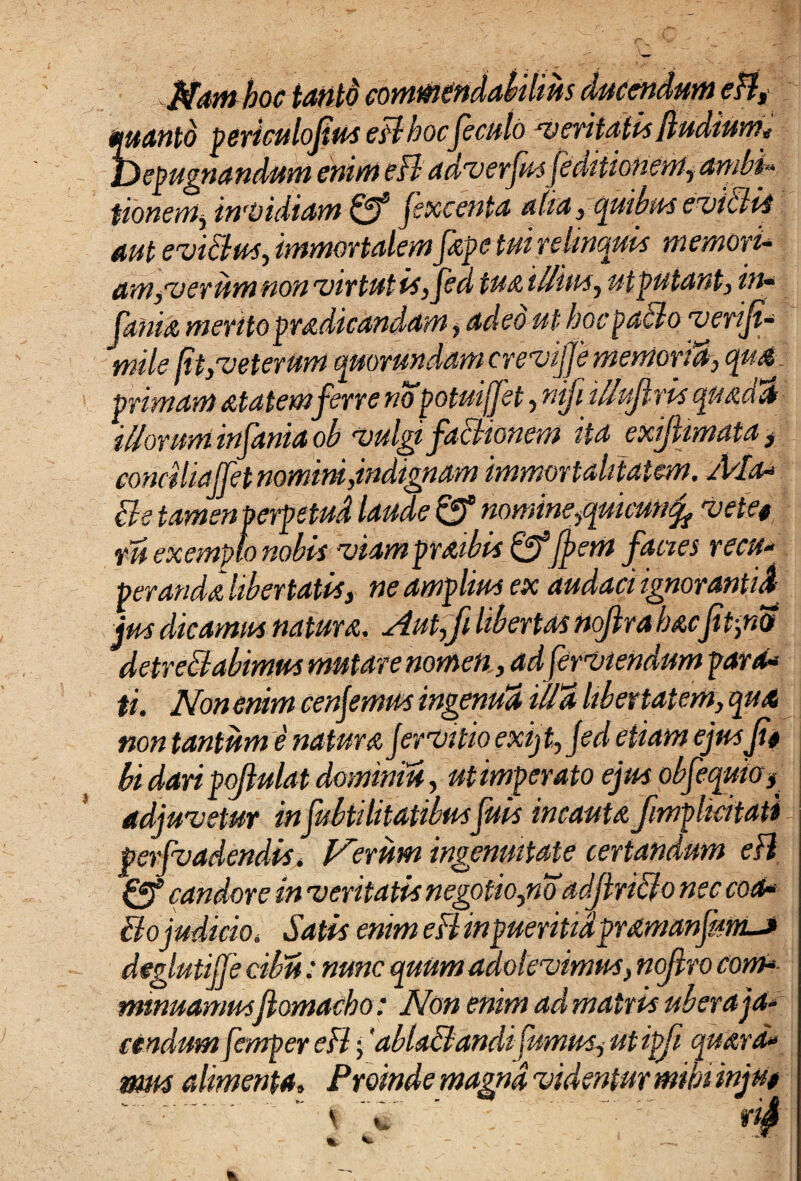 Nam hoc tantò commendabilius ducendum est,
quantò periculosius est hoc seculo veritatis studium.
Depugnandum enim est adversus seditionem, ambi-
tionem, invidiam & sexcenta alia, quibus evictis
aut evictus, immortalem sæpe tui relinquis memori-
am, verùm non virtutis, sed tuæ illius, ut putant, in-
saniæ merito prædicandam, adeò ut hoc pacto verisi-
mile sit, veterum quorundam crevisse memoriã, quæ
primam ætatem ferre nō potuisset, nisi illustris quædã
illorum insania ob vulgi factionem ita existimata,
conciliasset nomini, indignam immortalitatem. Ma-
cte tamen perpetuâ laude & nomine, quicunq; vete-
rū exemplo nobis viam præibis & spem facies recu-
perandæ libertatis, ne amplius ex audaci ignorantiâ
jus dicamus naturæ. Aut, si libertas nostra hæc sit, nō
detrectabimus mutare nomen, ad serviendum para-
ti. Non enim censemus ingenuã illã libertatem, quæ
non tantùm è naturæ servitio exijt, sed etiam ejus si-
bi dari postulat dominiū, ut imperato ejus obsequio,
adjuvetur in subtilitatibus suis incautæ simplicitati
persvadendis. Verùm ingenuitate certandum est
& candore in veritatis negotio, nō adstricto nec coa-
cto judicio. Satis enim est in pueritiâ præmansum
deglutisse cibū: nunc quum adolevimus, nostro com-
minuamus stomacho: Non enim ad matris ubera ja-
cendum semper est; ablactandi sumus, ut ipsi quæra-
mus alimenta. Proinde magnâ videntur mihi inju-
riâ